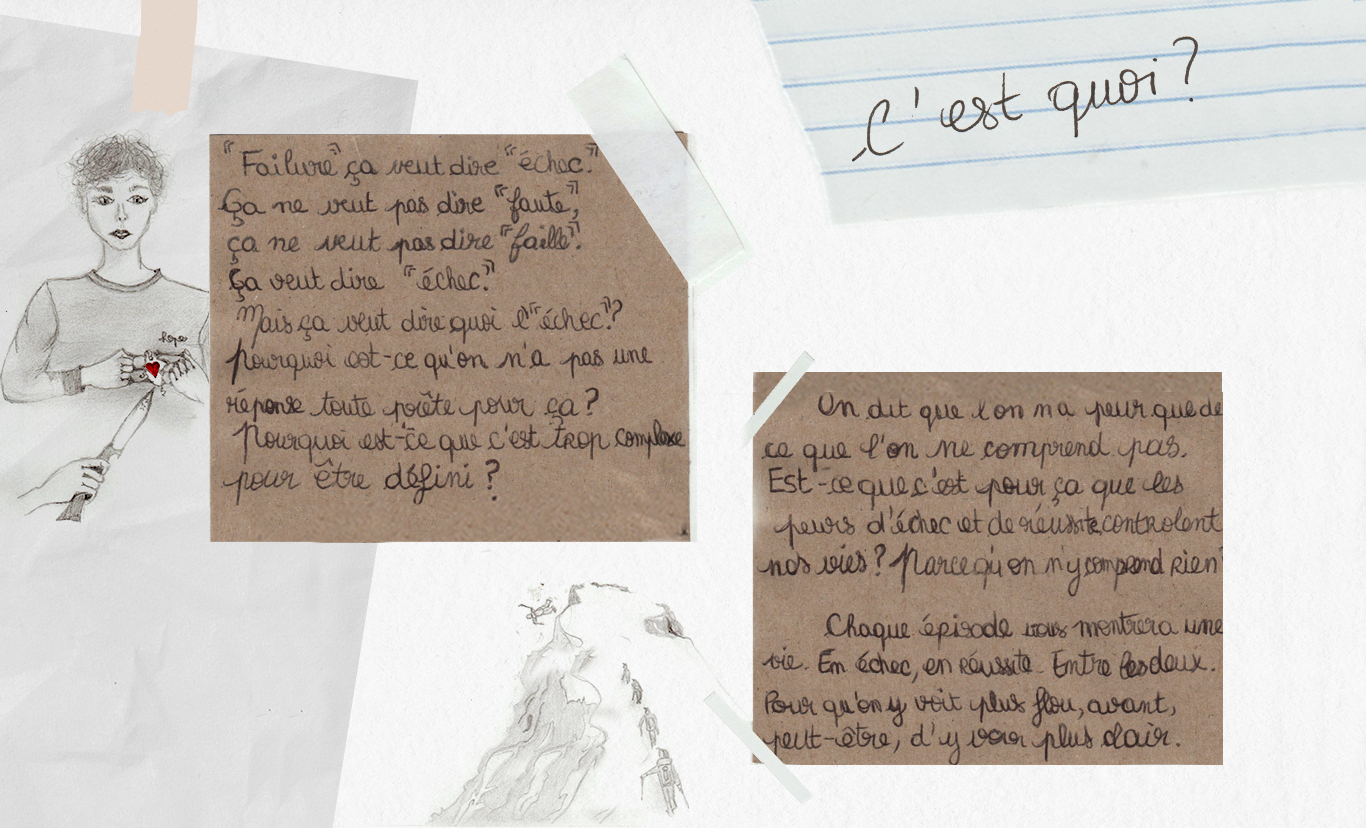 C'est quoi?
"Failure" ça veut dire "échec".
Ça ne veut pas dire "faute",
ça ne veut pas dire "faille".
Ça veut dire "échec".
Mais ça veut dire quoi l'"échec"?
Pourquoi est-ce qu'on n'a pas une
réponse toute prête pour ça?
Pourquoi est-ce que c'est trop complexe
pour être défini?
hope
On dit que l'on n'a peur que de
ce que l'on ne comprend pas.
Est-ce que c'est pour ça que les
peurs d'échec et de réussite contrôlent
nos vies? Parce qu'on n'y comprend rien?
Chaque épisode vous montrera une
vie. En échec, en réussite. Entre les deux.
Pour qu'on y voit plus flou, avant,
peut-être, d'y voir plus clair.